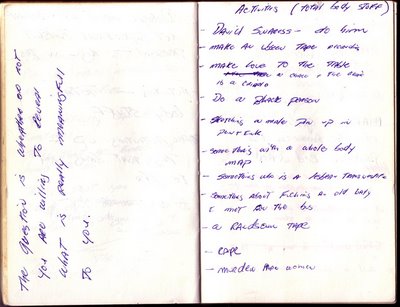 THE QUESTION IS WHETHER OR NOT
YOU ARE WILLING TO REVEAL
WHAT IS REALLY MEANINGFULL
TO YOU.
ACTIVITIES (TOTAL BODY STUFF)
- DAVID - do him
- MAKE AN TAPE recording
- MAKE LOVE TO THE TABLE
IS A
- Do a black person
- a male pin up in
- SOMETHING with a whole body
MAP
- SOMETHING who IS A
- SOMETHING ABOUT an old lady
I met ON THE bus
- a RANDOM TAPE
- RAPE
- murder women